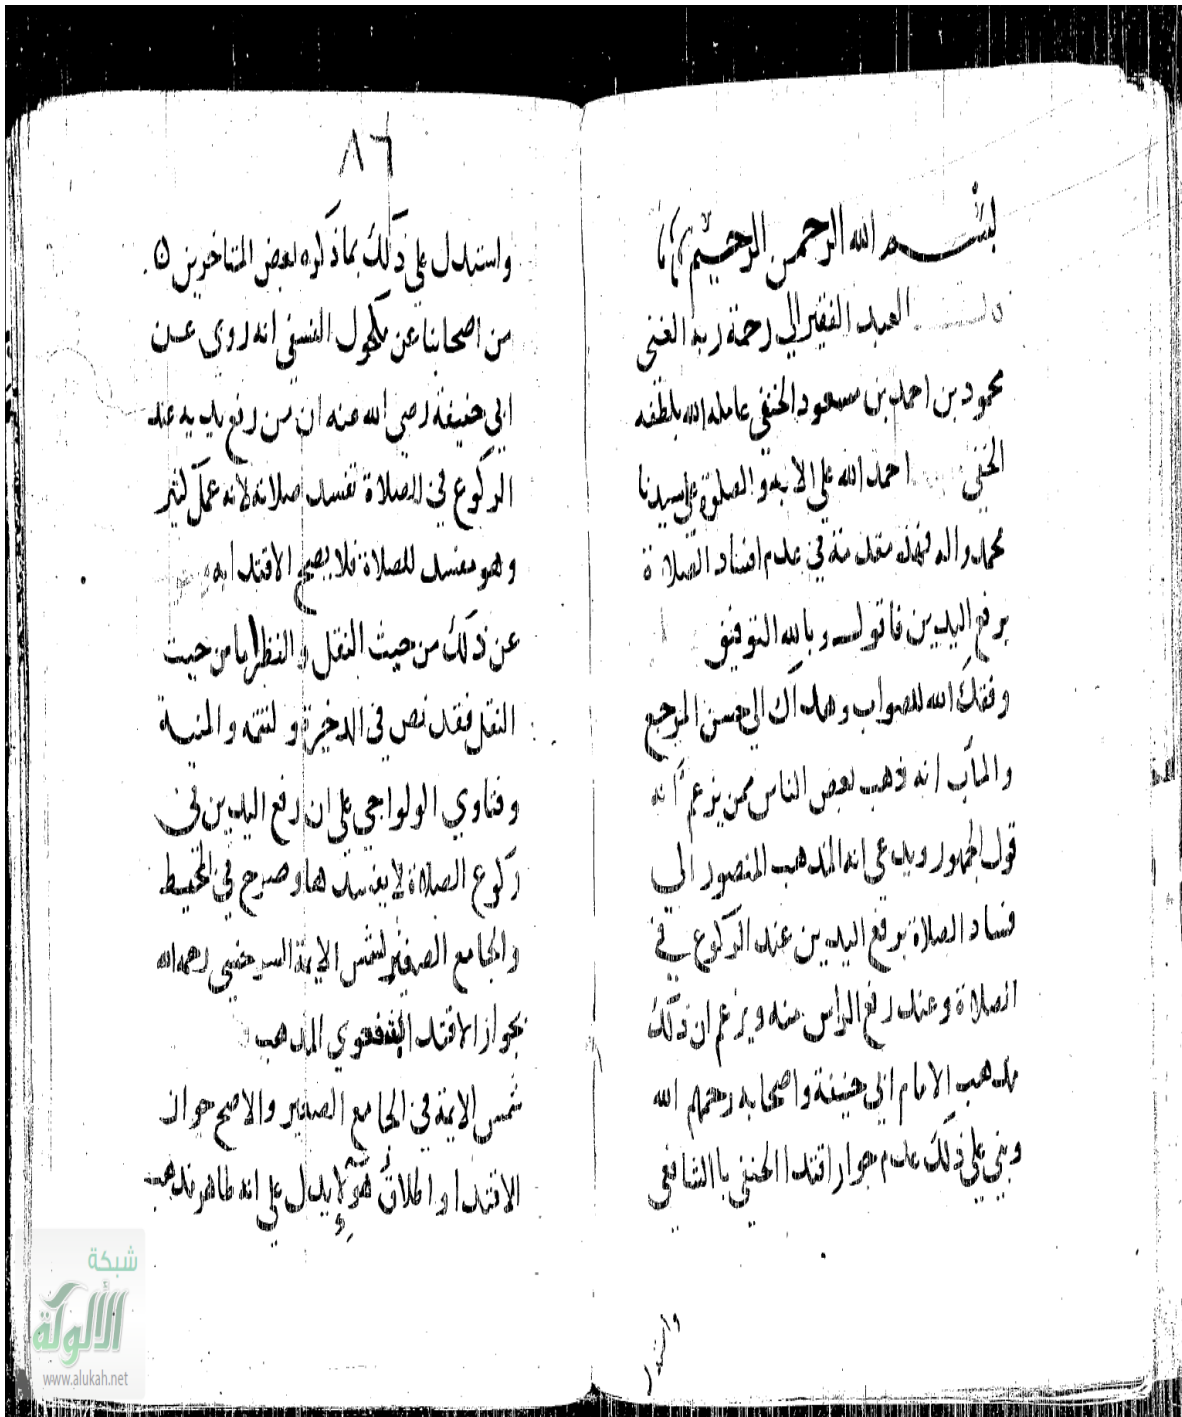 بسم الله الرحمن الرحيم
العبد الفقير الى رحمة ربه الغنى
محمود بن احمد بن مسعود الحنفى عامله الله بلطفه
الخفى احمد الله على الايه والصلوة على سيدنا
محمد واله فهذه مقدمة في عدم افساد الصلاة
برفع اليدين فاقول وبالله التوفيق
وفقك الله للصواب وهداك الي حسن المرجع
والمآب انه ذهب بعض الناس ممن يزعم انه
قول الجمهور ويدعي انه المذهب المنصور الى
فساد الصلاة برفع اليدين عند الركوع في
الصلاة وعند رفع الراس منه ويزعم ان ذلك
مذهب الامام ابي حنيفة واصحابه رحمهم الله
وبني علي ذلك عدم جواز اقتدا الحنفي باالشافعي
واستدل
٨٦
واستدل علي ذلك بما ذكره بعض المتاخرين
من اصحابنا عن مكحول النسفي انه روي عن
ابي حنيفة رضي الله عنه ان من رفع يديه عند
الركوع في الصلاة تفسد صلاته لانه عمل كثير
وهو مفسد للصلاة فلا يصح الاقتدا به
عن ذلك من حيث النقل والنظر اما من حيث
النقل فقد نص في الذخيرة والتتمه والمنية
وفتاوي الولواجي على ان رفع اليدين في
ركوع الصلاة لا يفسدها وصرح في المحيط
والجامع الصغير لشمس الايمة السرخسي رحمه الله
بجواز الاقتدا بشفعوي المذهب
شمس الايمة في الجامع الصغير والاصح جواز
الاقتدا واطلاق هؤلإ يدل على انه ظاهر مذهب
شبكة
الألوكة
www.alukah.net